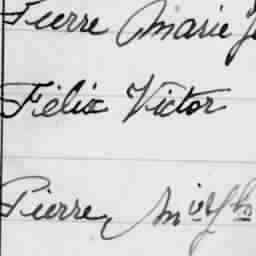 Pierre Marie
Félix Victor
Pierre, M